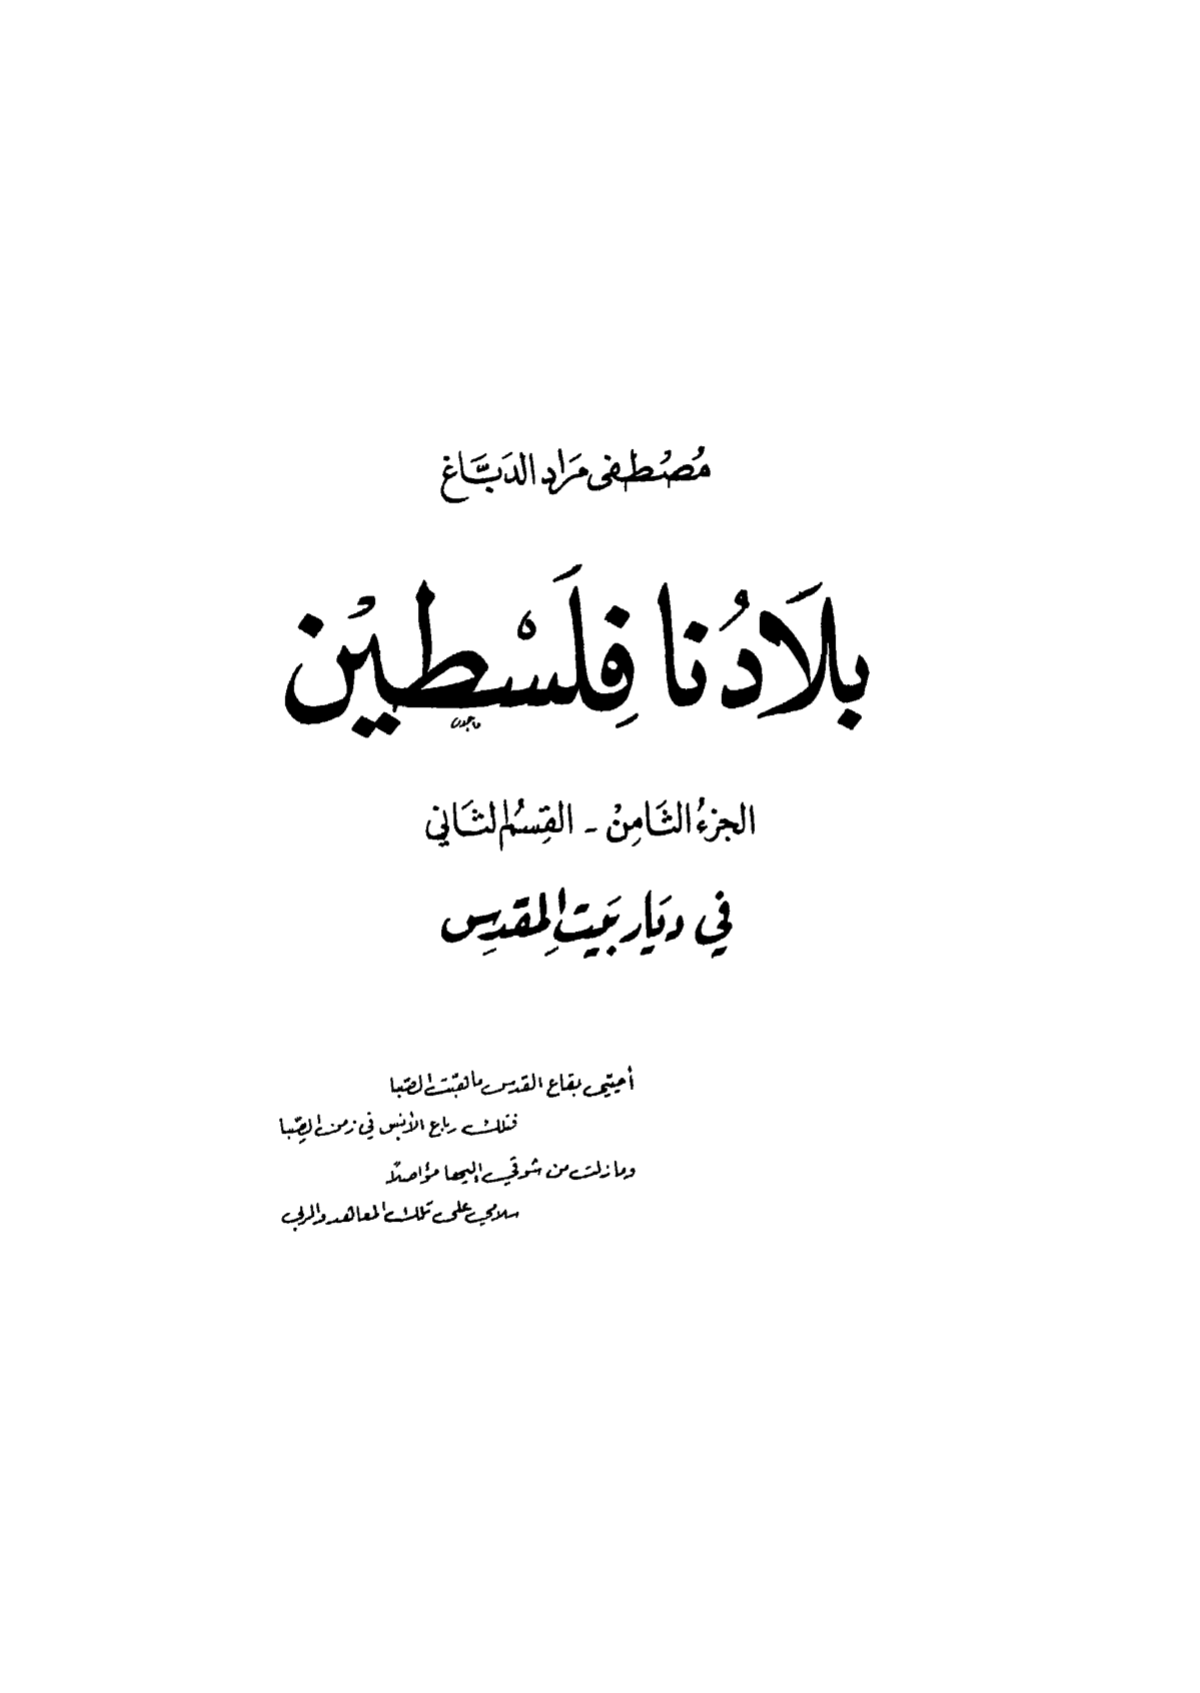 مُصْطفى مَراد الدبَّاغ
بلَادُنا فِلَسْطيْن
ماجد
الجزءُ الثَامِنْ - القِسمُ الثَاني
في ديَار بَيت المِقدِس
أحيّي بقاع القدس ما هبّت الصَّبا
فتلك رباع الأنس في زمن الصِّبا
وما زلت من شوقي إليها مؤاصلاً
سلامي على تلك المعاهد والربى